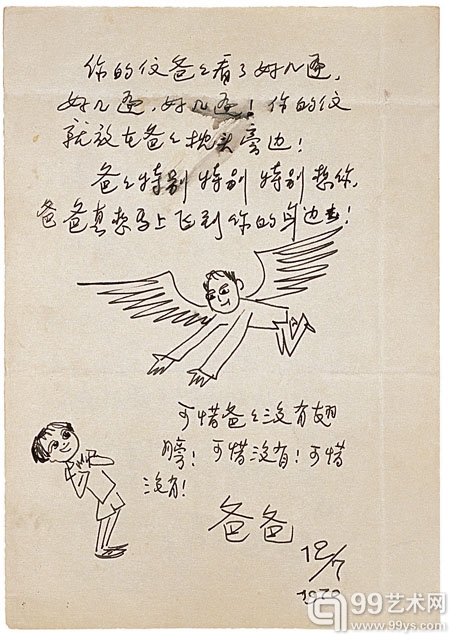 你的伩爸々看了好几遍,
好几遍,好几遍!你的伩
就放在爸々枕头旁边!
爸々特别特别特别想你,
爸爸真想马上飞到你的身边去!
可惜爸々没有翅
膀!可惜没有!可惜
没有!
爸爸
99艺术网
www.99ys.com